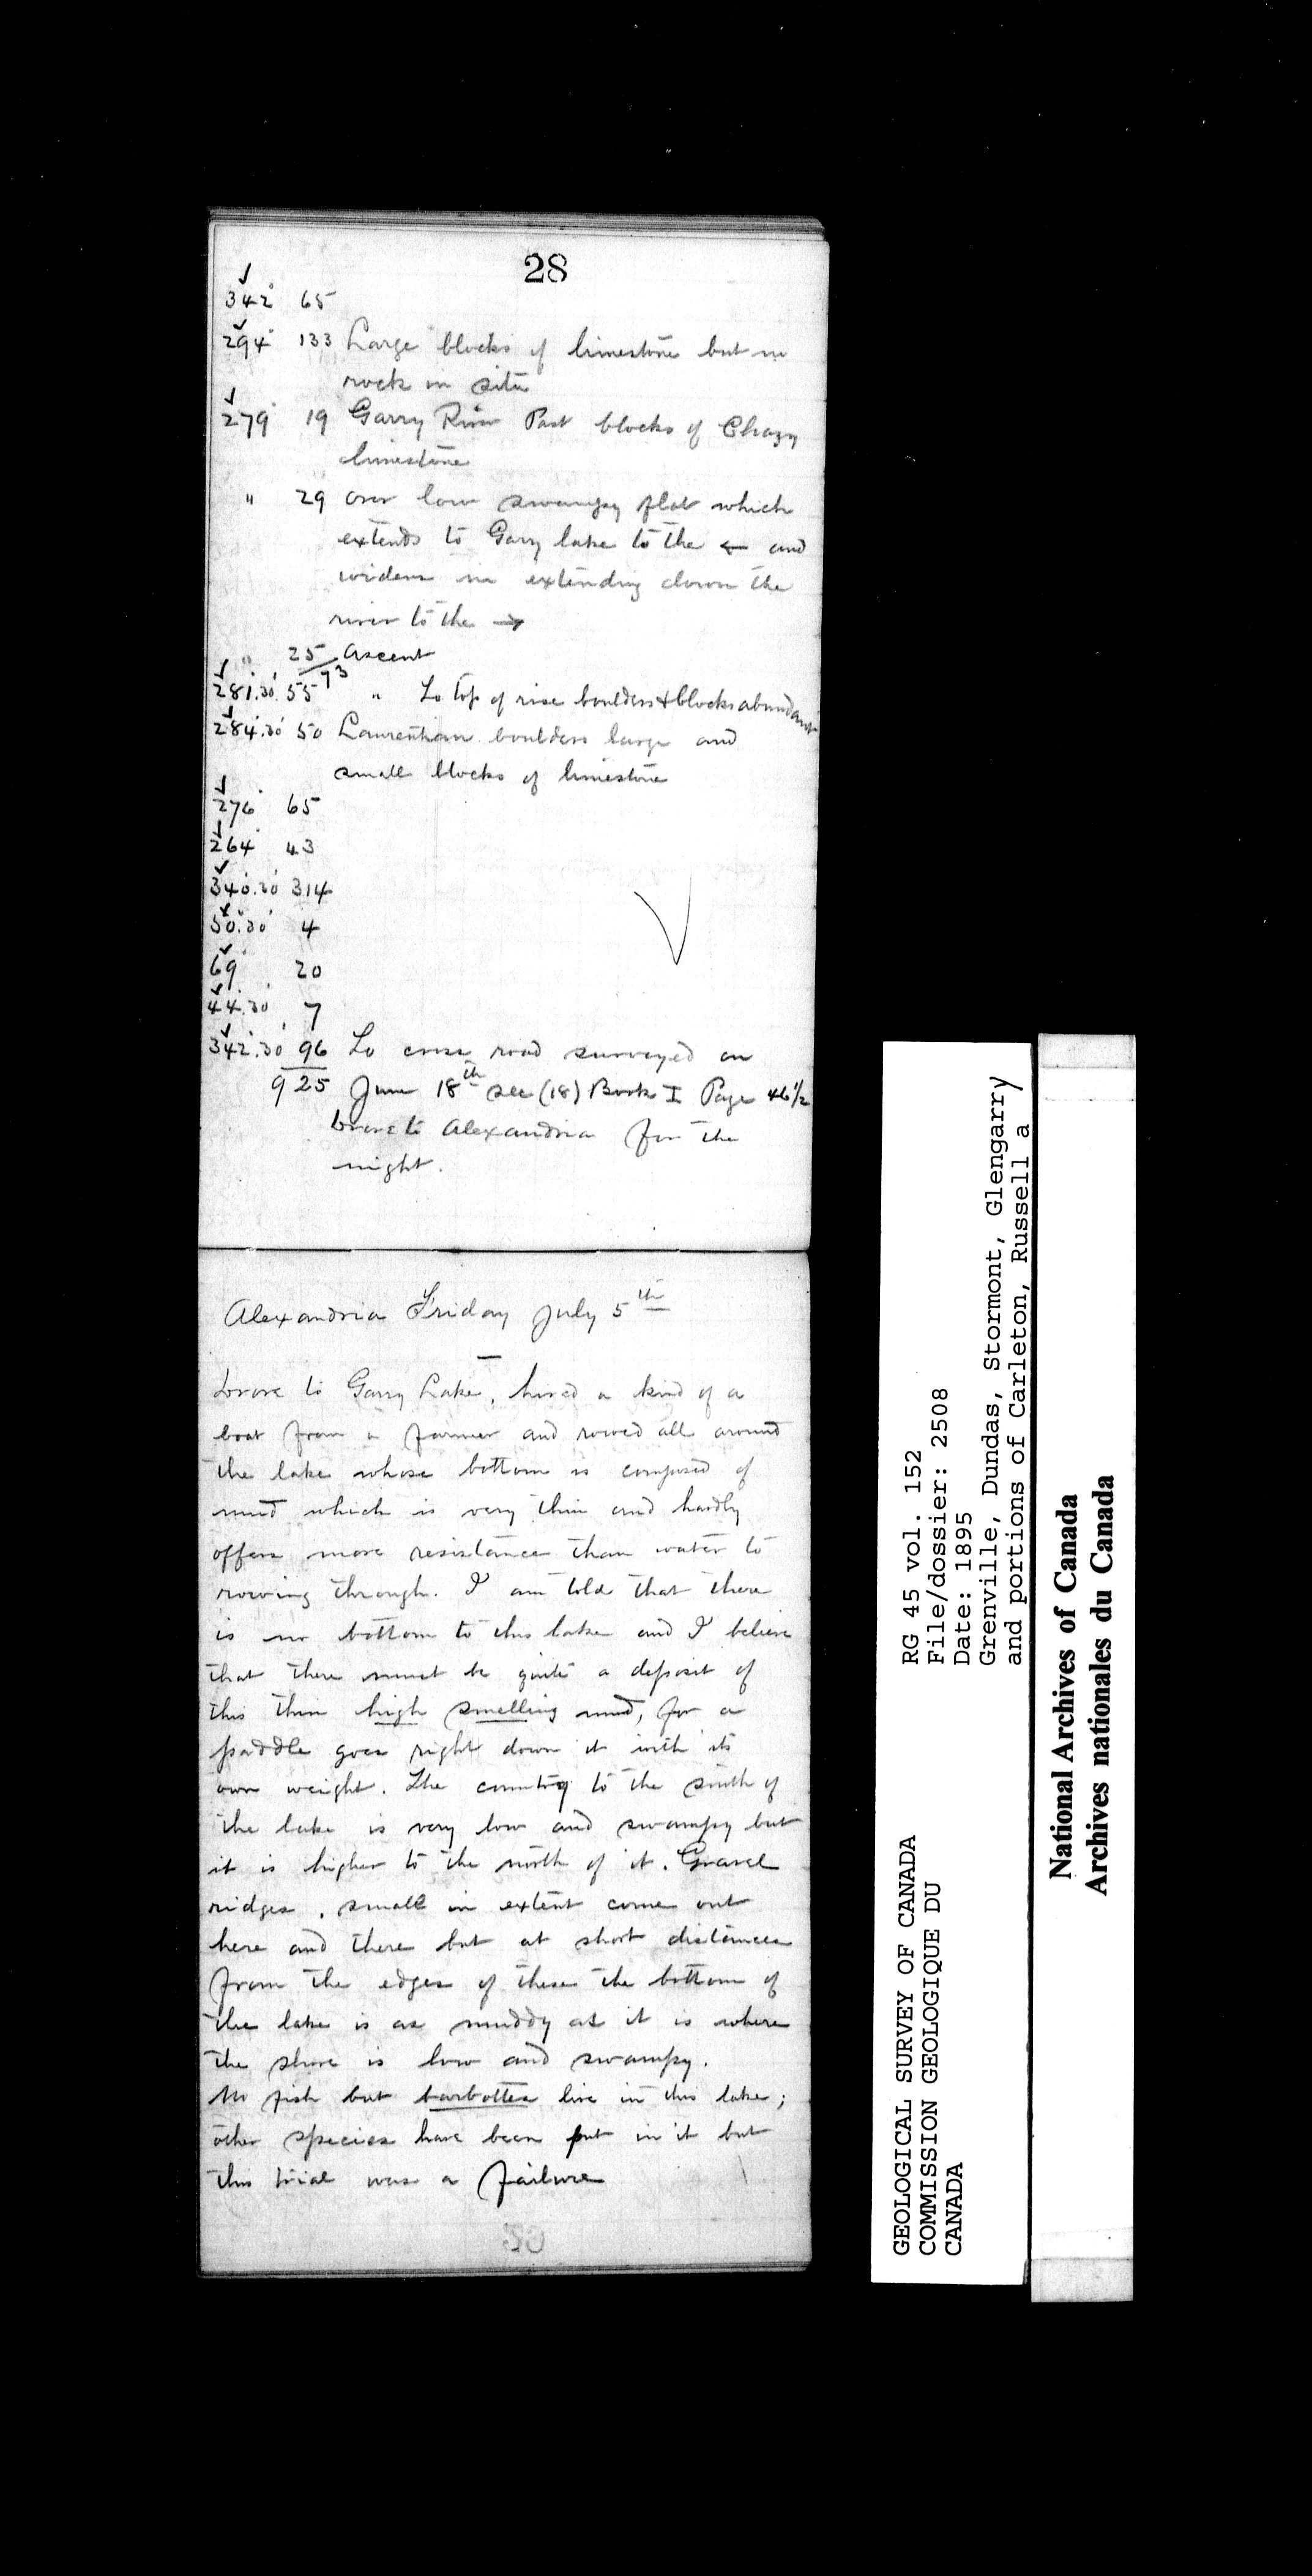 28
342° 65
294° 133 Large blocks of limestone but no
rock in situ
279° 19 Garry River Past blocks of Chazy
limestone
" 29 over low swampy flat which
extends to Garry lake to the ← and
widens in extending down the
river to the →
" 25 Ascent
73
281°.30' 55 " To top of rise boulders & blocks abundant
284°.30' 50 Laurentian boulders large and
small blocks of limestone
276° 65
264° 43
340°.30' 314
50°.30' 4
69° 20
44°.30' 7
342°.30' 96 To cross road surveyed on
925 June 18th see (18) Book I Page 46 1/2
Drove to Alexandria for the
night.
Alexandria Friday July 5th
Drove to Garry Lake, hired a kind of a
boat from a farmer and rowed all around
the lake whose bottom is composed of
mud which is very thin and hardly
offers more resistance than water to
rowing through. I am told that there
is no bottom to this lake and I believe
that there must be quite a deposit of
this thin high smelling mud, for a
paddle goes right down it with its
own weight. The country to the south of
the lake is very low and swampy but
it is higher to the north of it. Gravel
ridges, small in extent come out
here and there but at short distances
from the edges of these the bottom of
the lake is as muddy as it is where
the shore is low and swampy.
No fish but barbottes live in this lake;
other species have been put in it but
this trial was a failure
GEOLOGICAL SURVEY OF CANADA
COMMISSION GEOLOGIQUE DU
CANADA
RG 45 vol. 152
File/dossier: 2508
Date: 1895
Grenville, Dundas, Stormont, Glengarry
and portions of Carleton, Russell a
National Archives of Canada
Archives nationales du Canada